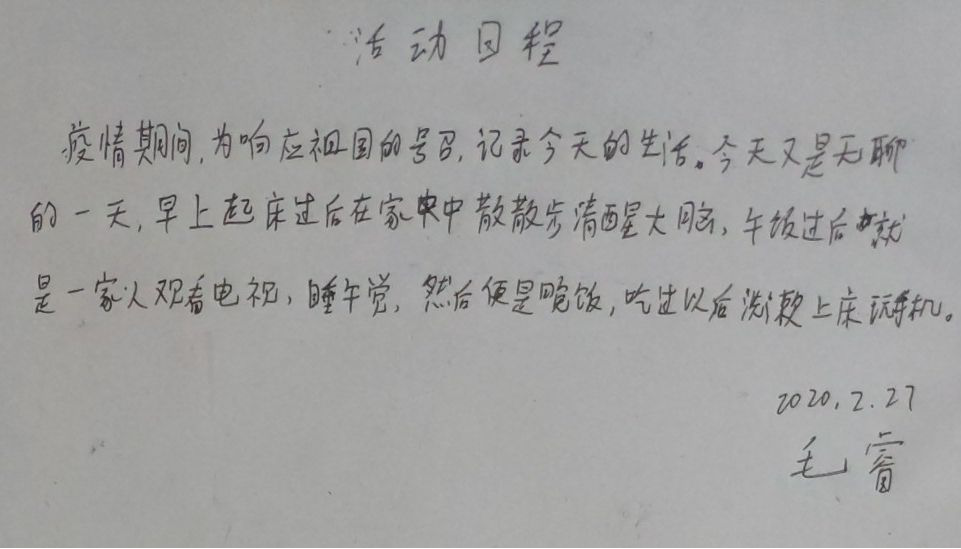 活动日程
疫情期间,为响应祖国的号召,记录今天的生活。今天又是无聊
的一天,早上起床过后在家中散散步清醒大脑,午饭过后就
是一家人观看电视,睡午觉,然后便是晚饭,吃过以后洗漱上床玩手机。
2020.2.27
毛睿